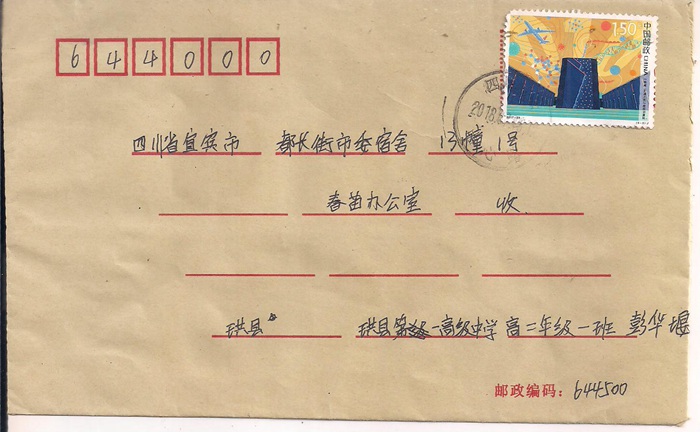 644000
150
中国邮政 CHINA
2018
四川省宜宾市 都长街市委宿舍 13幢 1号
春苗办公室 收
珙县 珙县第一高级中学高二年级一班 彭华堰
邮政编码：644500